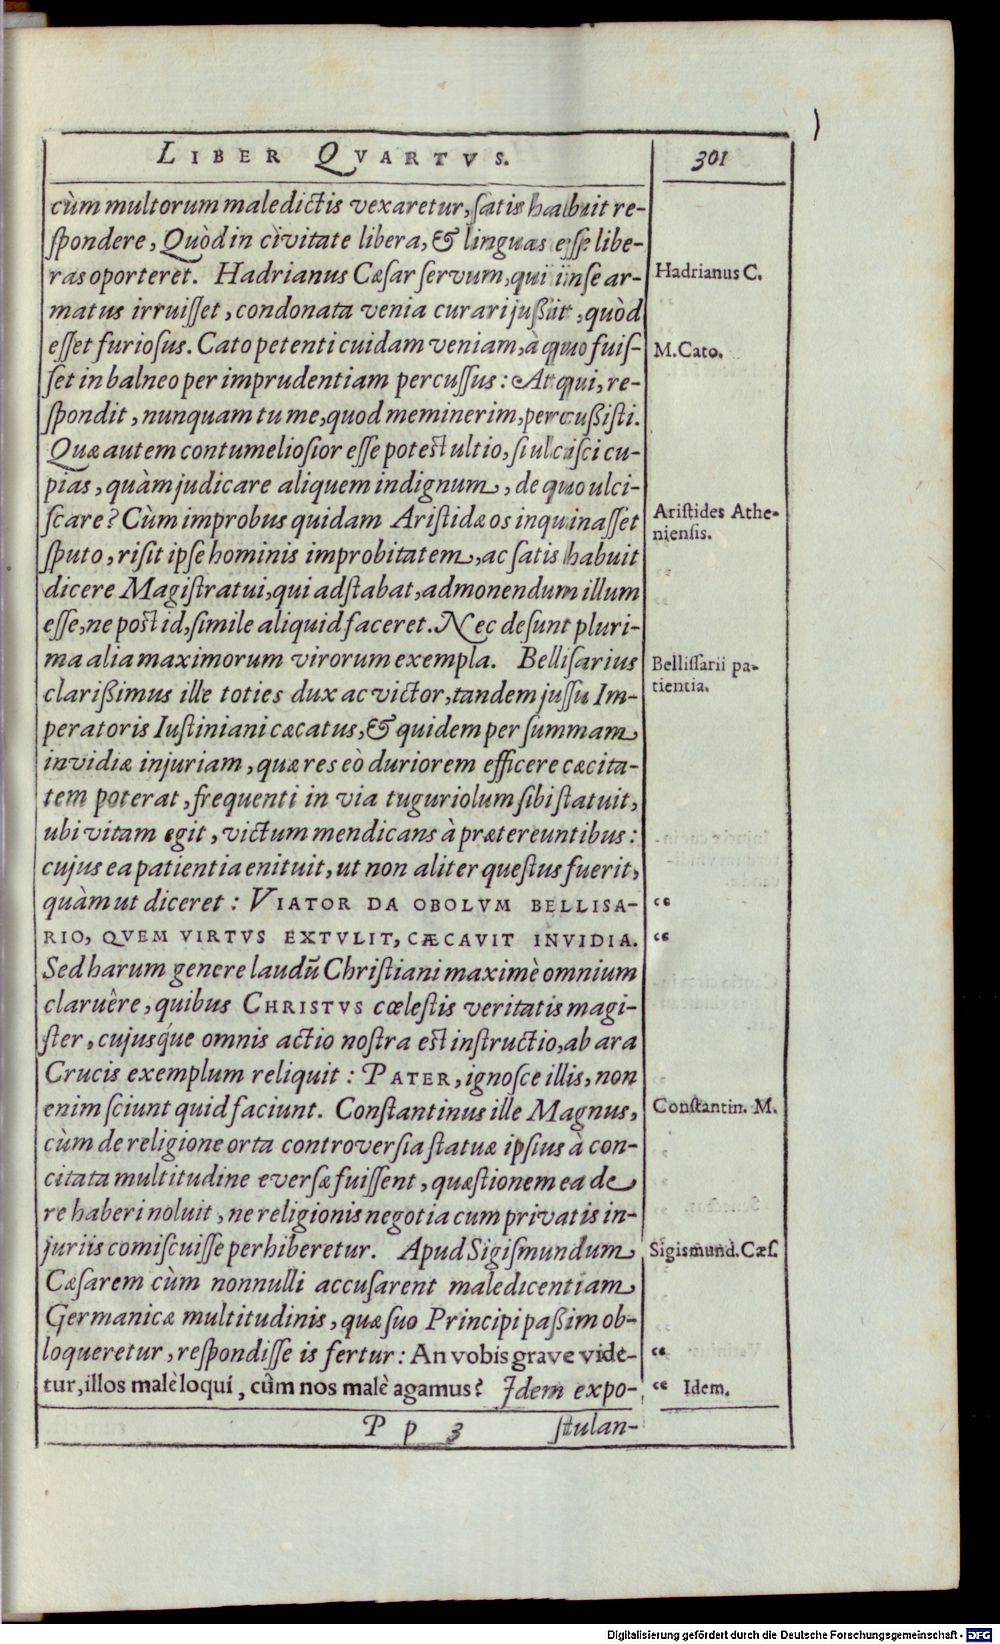 LIBER QVARTVS. 301
cùm multorum maledictis vexaretur, satis habuit re-
spondere, Quòd in civitate libera, & linguas esse libe-
ras oporteret. Hadrianus Cæsar servum, qui in se ar-
Hadrianus C.
matus irruisset, condonata venia curari jußit, quòd
esset furiosus. Cato petenti cuidam veniam, à quo fuis-
M. Cato.
set in balneo per imprudentiam percussus: Atqui, re-
spondit, nunquam tu me, quod meminerim, percußisti.
Quæ autem contumeliosior esse potest ultio, si ulcisci cu-
pias, quàm judicare aliquem indignum, de quo ulci-
scare? Cùm improbus quidam Aristidæ os inquinasset
Aristides Athe-
niensis.
sputo, risit ipse hominis improbitatem, ac satis habuit
dicere Magistratui, qui adstabat, admonendum illum
esse, ne post id, simile aliquid faceret. Nec desunt pluri-
ma alia maximorum virorum exempla. Bellisarius
Bellissarii pa-
tientia.
clarißimus ille toties dux ac victor, tandem jussu Im-
peratoris Iustiniani cæcatus, & quidem per summam
invidiæ injuriam, quæ res eò duriorem efficere cæcita-
tem poterat, frequenti in via tuguriolum sibi statuit,
ubi vitam egit, victum mendicans à prætereuntibus:
cujus ea patientia enituit, ut non aliter questus fuerit,
quàm ut diceret: VIATOR DA OBOLVM BELLISA-
“
RIO, QVEM VIRTVS EXTVLIT, CÆCAVIT INVIDIA.
“
Sed harum genere laudũ Christiani maximè omnium
claruêre, quibus CHRISTVS cœlestis veritatis magi-
ster, cujusque omnis actio nostra est instructio, ab ara
Crucis exemplum reliquit: PATER, ignosce illis, non
enim sciunt quid faciunt. Constantinus ille Magnus,
Constantin. M.
cùm de religione orta controversia statuæ ipsius à con-
citata multitudine eversæ fuissent, quæstionem ea de
re haberi noluit, ne religionis negotia cum privatis in-
juriis comiscuisse perhiberetur. Apud Sigismundum
Sigismund. Cæs.
Cæsarem cùm nonnulli accusarent maledicentiam
Germanicæ multitudinis, quæ suo Principi paßim ob-
loqueretur, respondisse is fertur: An vobis grave vide-
“
tur, illos malè loqui, cùm nos malè agamus? Idem expo-
“ Idem.
P p 3 stulan-
Digitalisierung gefördert durch die Deutsche Forschungsgemeinschaft - DFG